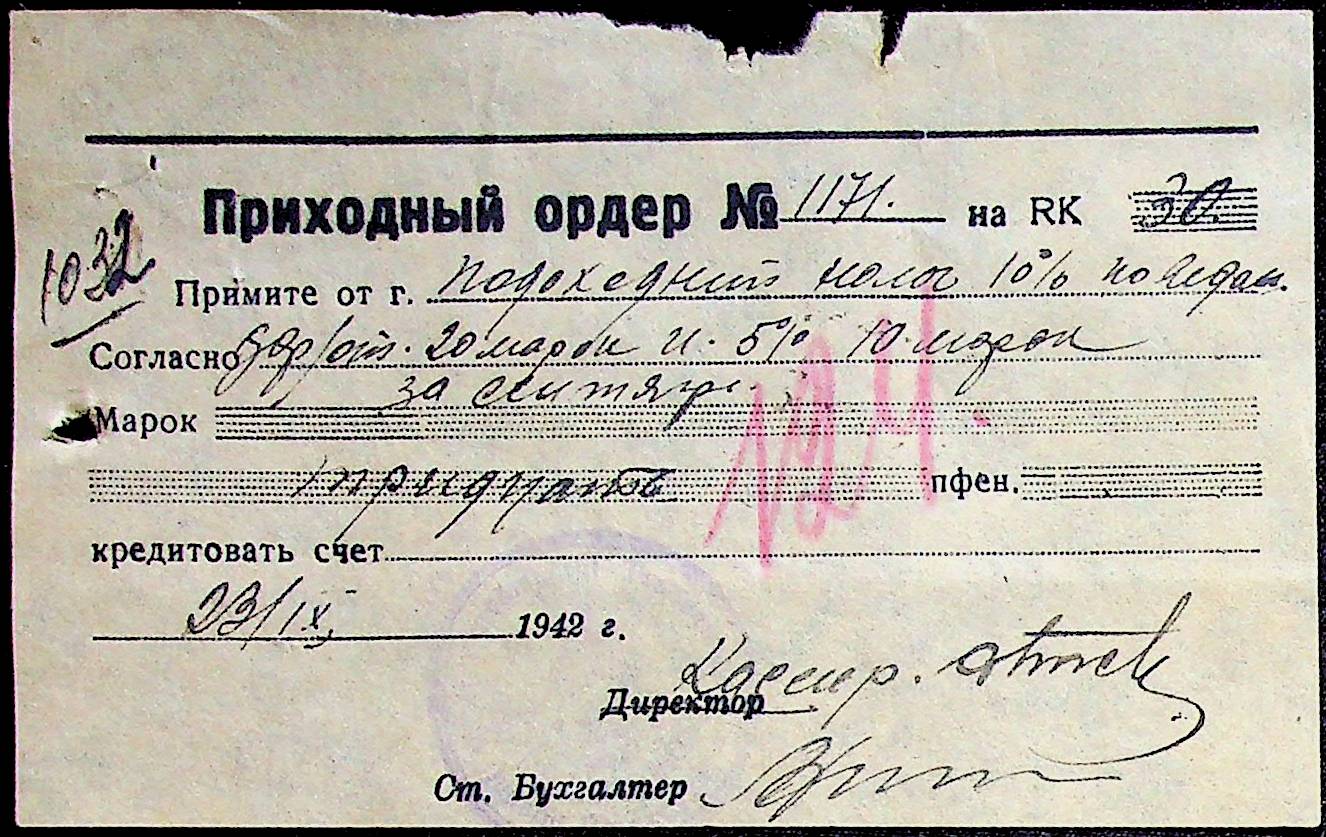 Приходный ордер № 1171. на RK 30.
1032
Примите от г. подоходний налог 10% по
Согласно 20 марок и 5% 10 марок
за сентябр.
Марок
тридцать пфен.
кредитовать счет
23/IX 1942 г.
Кассир.
Директор
Ст. Бухгалтер